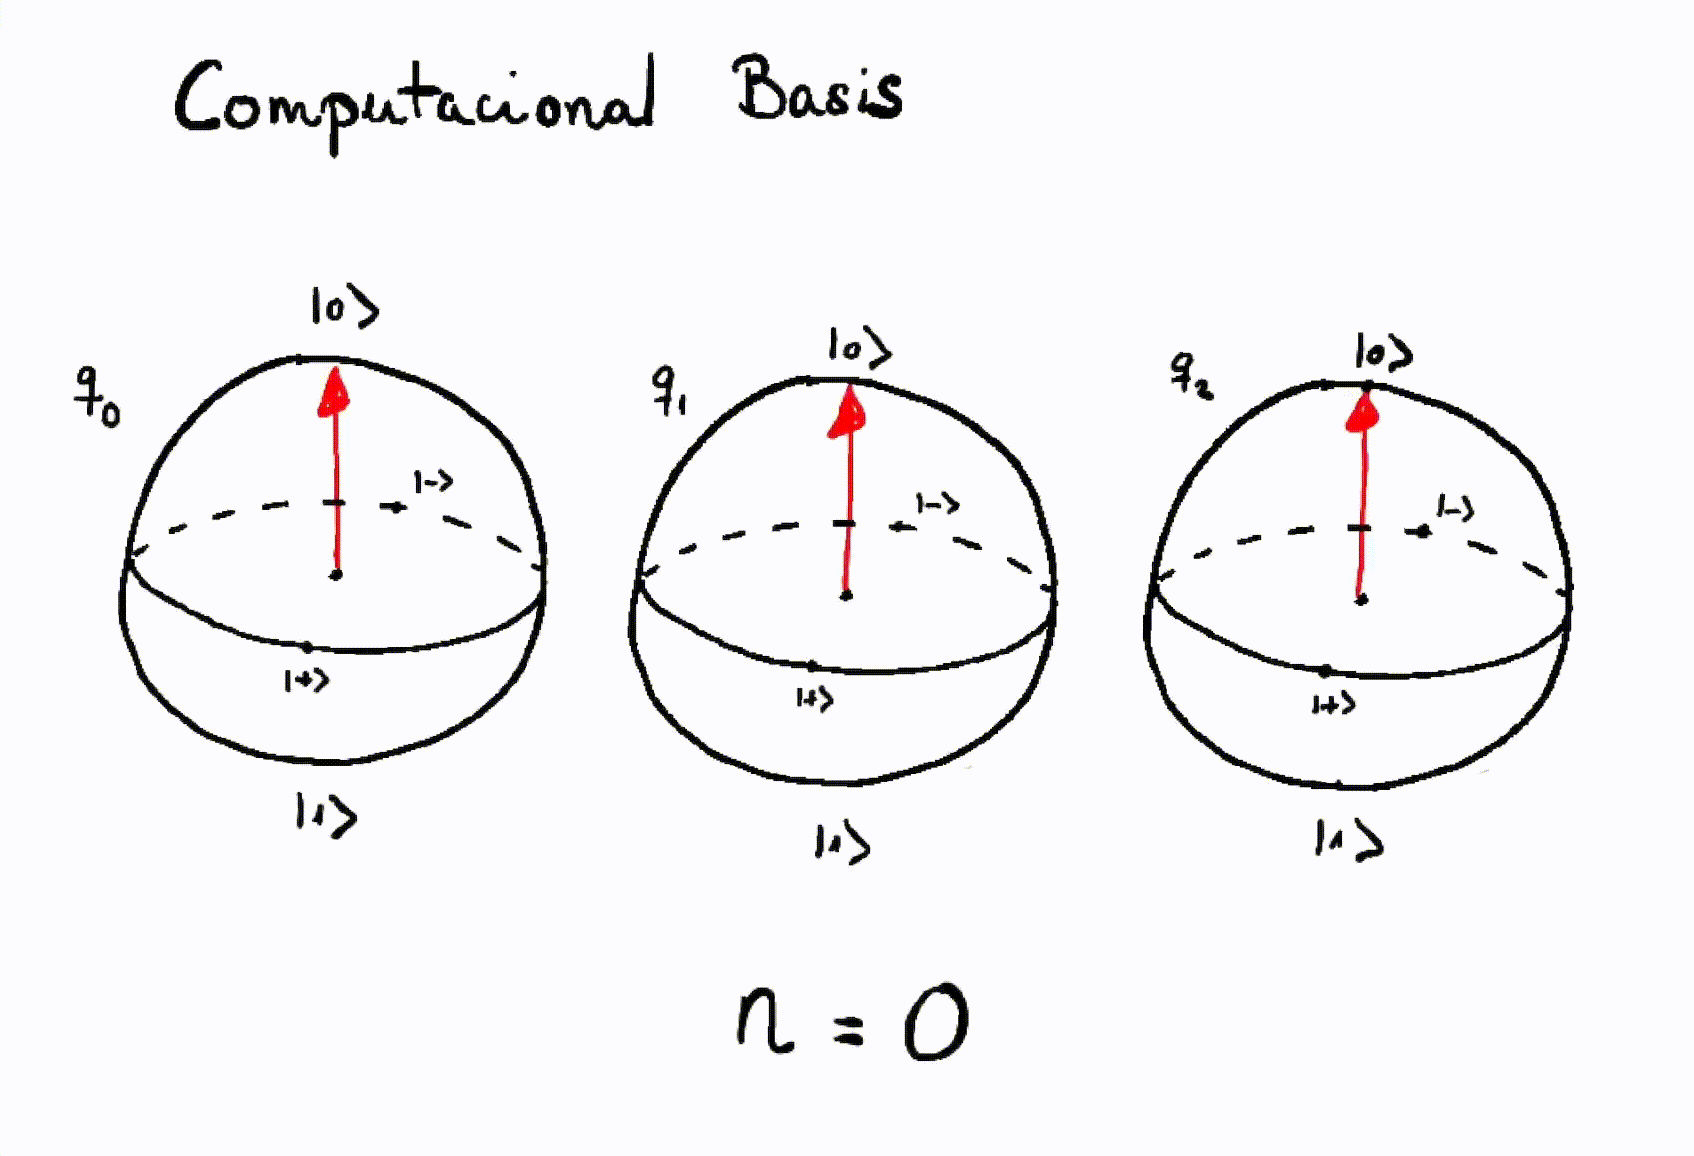 Computacional Basis
|0⟩
|0⟩
|0⟩
q₀
q₁
q₂
|−⟩
|−⟩
|−⟩
|+⟩
|+⟩
|+⟩
|1⟩
|1⟩
|1⟩
n = 0